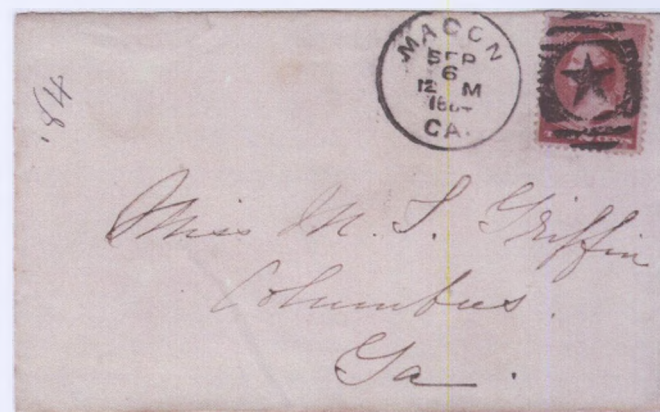 MACON
SEP
6
12 M
1884
GA.
'84
Miss M. T. Griffin
Columbus.
Ga.